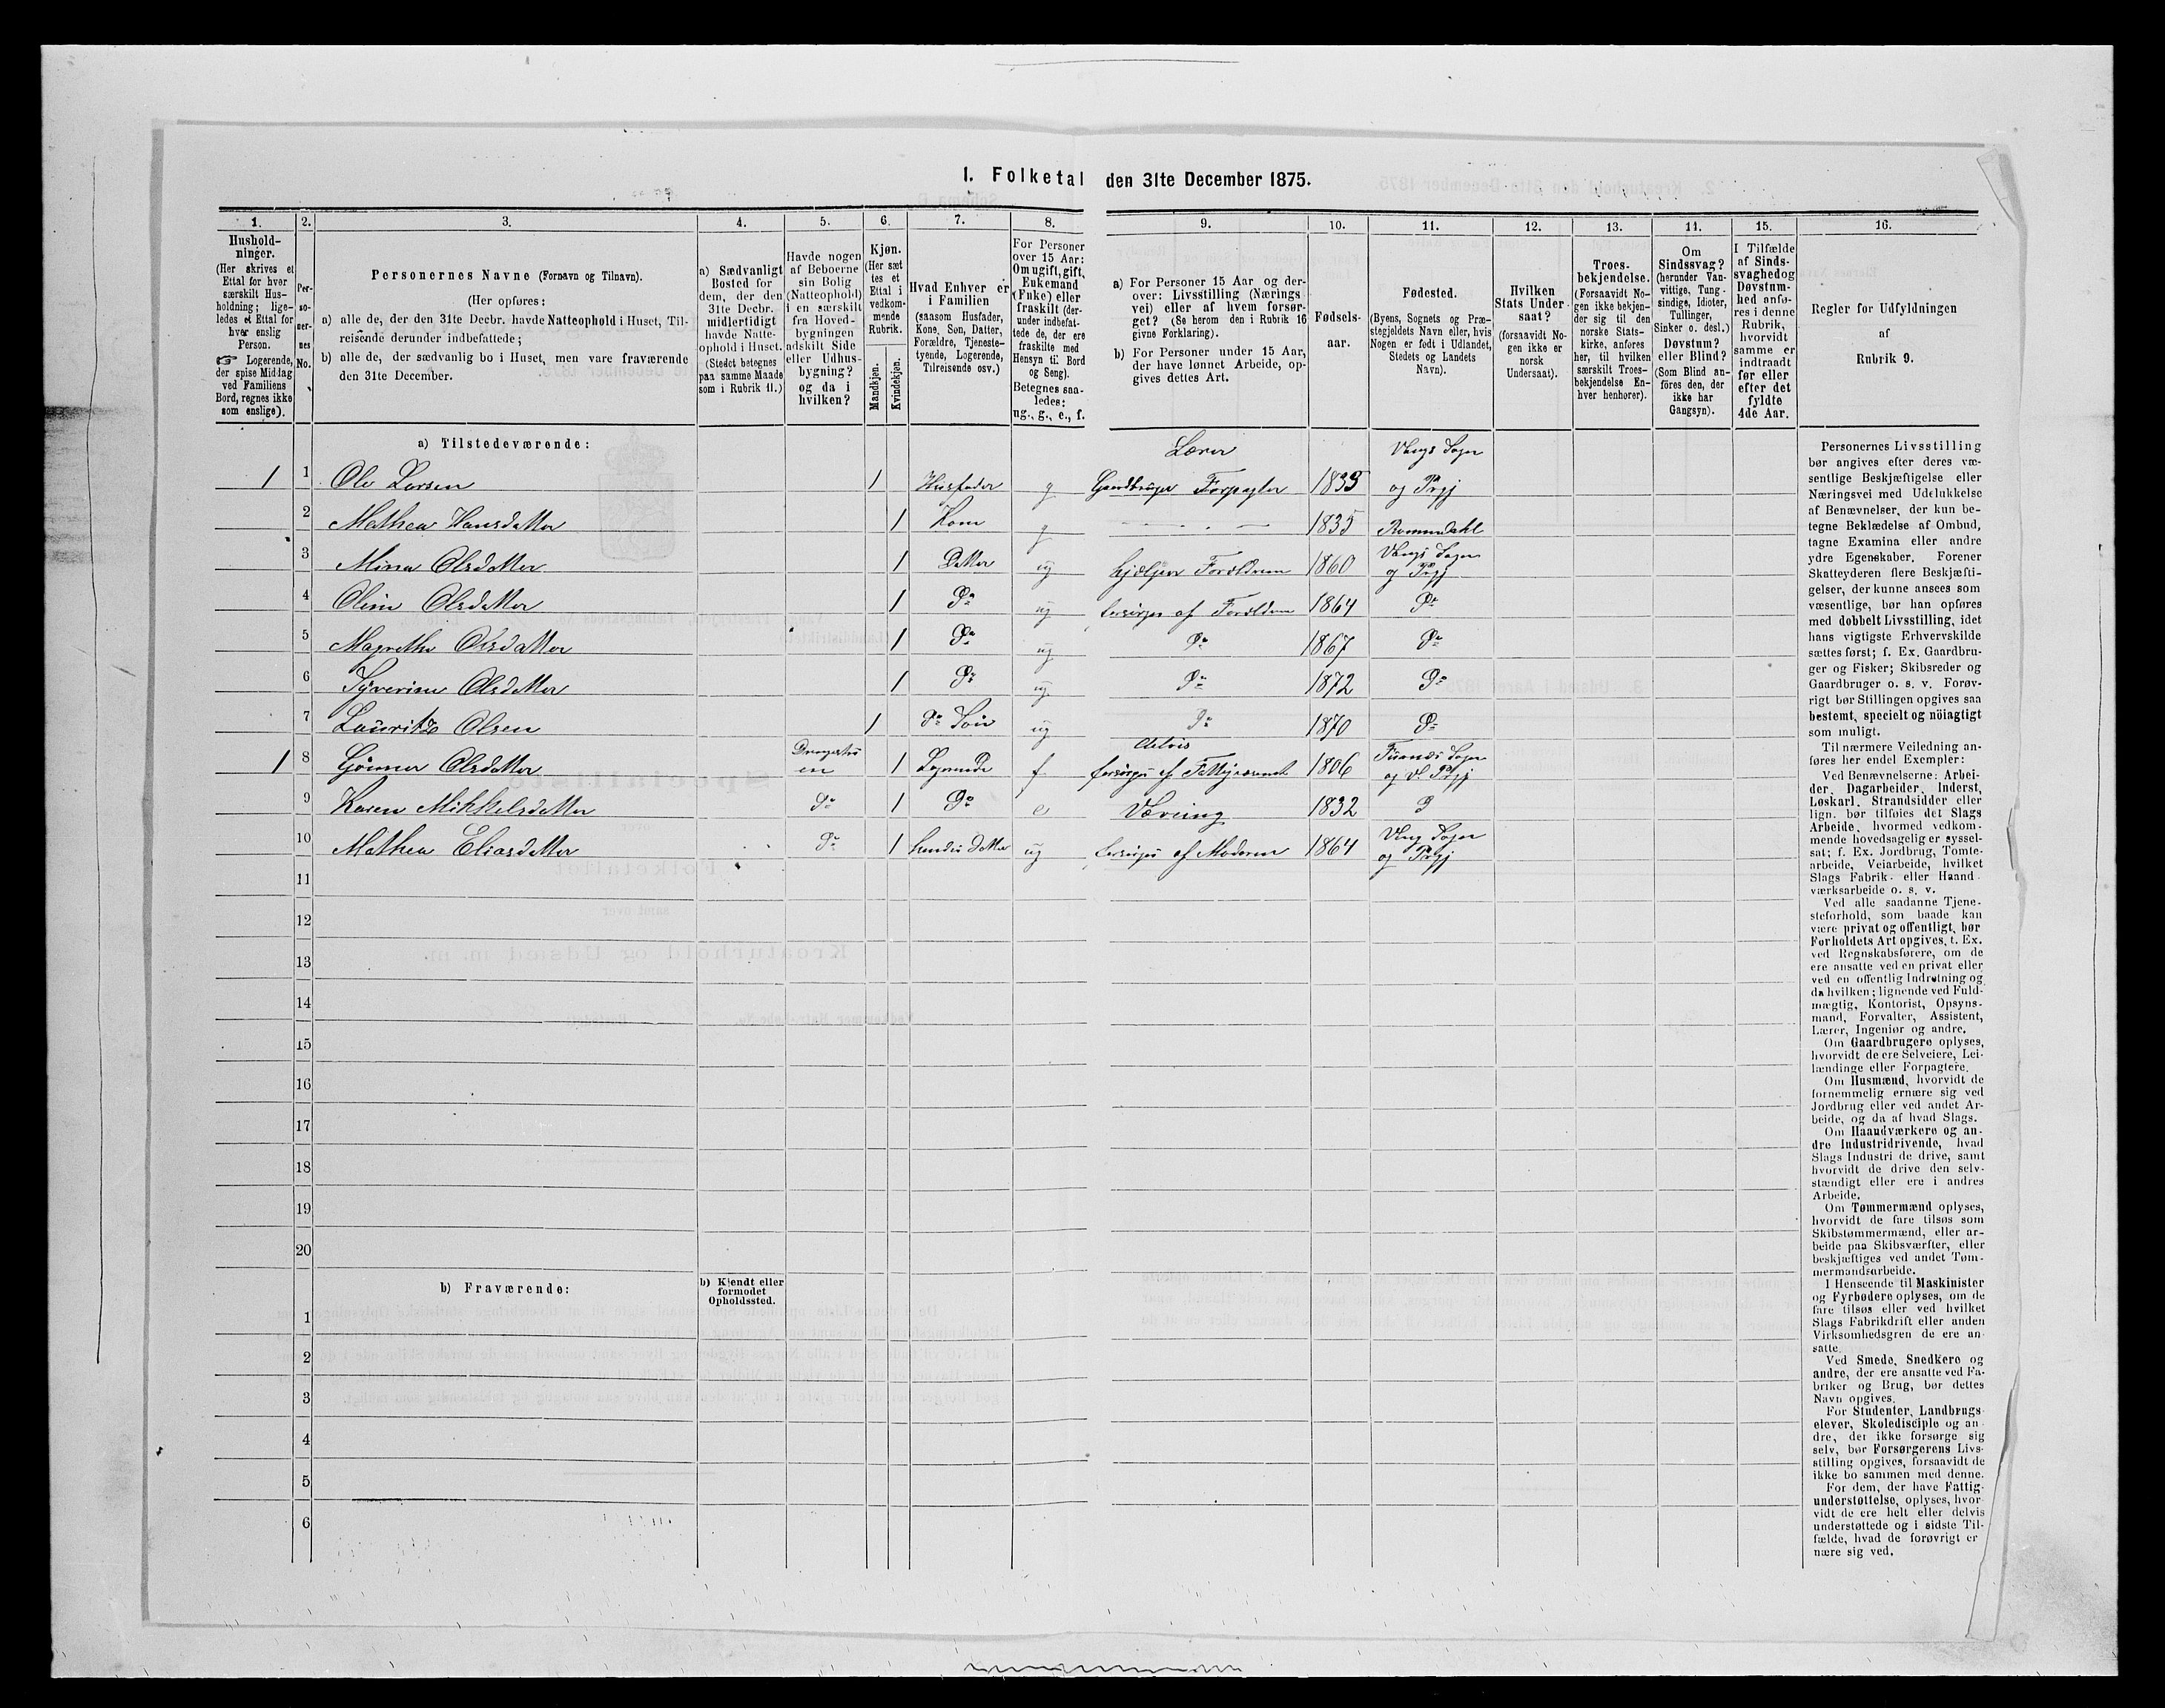 1. Folketal den 31te December 1875.
1. 2. 3. 4. 5. 6. 7. 8. 9. 10. 11. 12. 13. 14. 15. 16.
Hushold-
ninger.
(Her skrives et
Ettal for hver
særskilt Hus-
holdning; lige-
ledes et Ettal for
hver enslig
Person.
☞ Logerende,
der spise Middag
ved Familiens
Bord, regnes ikke
som enslige).
Per-
so-
ner-
nes
No.
Personernes Navne (Fornavn og Tilnavn).
(Her opføres:
a) alle de, der den 31te Decbr. havde Natteophold i Huset, Til-
reisende derunder indbefattede;
b) alle de, der sædvanlig bo i Huset, men vare fraværende
den 31te December.
a) Sædvanligt
Bosted for
dem, der den
31te Decbr.
midlertidigt
havde Natte-
ophold i Huset.
(Stedet betegnes
paa samme Maade
som i Rubrik 11.)
Havde nogen
af Beboerne
sin Bolig
(Natteophold)
i en særskilt
fra Hoved-
bygningen
adskilt Side
eller Udhus-
bygning?
og da i
hvilken?
Kjøn.
(Her sæt
tes et
Ettal i
vedkom-
mende
Rubrik.
Mandkjøn.
Kvindekjøn.
Hvad Enhver er
i Familien
(saasom Husfader,
Kone, Søn, Datter,
Forældre, Tjeneste-
tyende, Logerende,
Tilreisende osv.)
For Personer
over 15 Aar:
Om ugift, gift,
Enkemand
(Enke) eller
fraskilt (der-
under indbefat-
tede de, der ere
fraskilte med
Hensyn til Bord
og Seng).
Betegnes saa-
ledes:
ug., g., e., f.
a) For Personer 15 Aar og der-
over: Livsstilling (Nærings
vei) eller af hvem forsør-
get? (Se herom den i Rubrik 16
givne Forklaring).
b) For Personer under 15 Aar,
der have lønnet Arbeide, op-
gives dettes Art.
Fødsels-
aar.
Fødested.
(Byens, Sognets og Præ-
stegjeldets Navn eller, hvis
Nogen er født i Udlandet,
Stedets og Landets
Navn).
Hvilken
Stats Under
saat?
(forsaavidt No-
gen ikke er
norsk
Undersaat).
Troes-
bekjendelse.
(Forsaavidt No-
gen ikke bekjen-
der sig til den
norske Stats-
kirke, anføres
her, til hvilken
særskilt Troes-
bekjendelse En-
hver henhører).
Om
Sindssvag?
(herunder Van-
vittige, Tung-
sindige, Idioter,
Tullinger,
Sinker o. desl.)
Døvstum?
eller Blind?
(Som Blind an-
föres den, der
ikke har
Gangsyn).
I Tilfælde
af Sinds-
svaghed og
Døvstum-
hed anfø-
res i denne
Rubrik,
hvorvidt
samme er
indtraadt
før eller
efter det
fyldte
4de Aar.
Regler for Udfyldningen
af
Rubrik 9.
a) Tilstedeværende:
Lærer Vangs Sogn
1 1 Ole Larsen 1 Husfader g Gaardbruger Forpagter 1833 og Prgj
2 Mathea Hansdatter 1 Kone g 1835 Romsdahl
Vangs Sogn
3 Mina Olsdatter 1 Datter ug hjælper Forældrene 1860 og Prgj
4 Oline Olsdatter 1 Do ug forsørges af Forældrene 1864 Do
5 Magrethe Olsdatter 1 Do ug Do 1867 Do
6 Syverine Olsdatter 1 Do ug Do 1872 Do
7 Lauritz Olsen 1 Do Søn ug Do 1870 Do
delvis Furnæs Sogn
1 8 Gønner Olsdatter 1 Logerende f forsørges af Fattigvæsenet 1806 og V. Prgj
9 Karen Mikkelsdatter Do 1 Do e Væving 1832 D
Vang Sogn
10 Mathea Eliasdatter Do 1 hendes Datter ug forsørges af Moderen 1864 og Prgj
11
12
13
14
15
16
17
18
19
20
b) Fraværende:
b) Kjendt eller
formodet
Opholdssted.
1
2
3
4
5
6
Personernes Livsstilling
bør angives efter deres væ-
sentlige Beskjæftigelse eller
Næringsvei med Udelukkelse
af Benævnelser, der kun be-
tegne Beklædelse af Ombud,
tagne Examina eller andre
ydre Egenskaber. Forener
Skatteyderen flere Beskjæfti-
gelser, der kunne ansees som
væsentlige, bør han opføres
med dobbelt Livsstilling, idet
hans vigtigste Erhvervskilde
sættes først; f. Ex. Gaardbru-
ger og Fisker; Skibsreder og
Gaardbruger o. s. v. Forøv-
rigt bør Stillingen opgives saa
bestemt, specielt og nöiagtigt
som muligt.
Til nærmere Veiledning an-
føres her endel Exempler:
Ved Benævnelserne: Arbei-
der, Dagarbeider, Inderst,
Løskarl, Strandsidder eller
lign. bør tilføies det Slags
Arbeide, hvormed vedkom-
mende hovedsagelig er syssel-
sat; f. Ex. Jordbrug, Tomte-
arbeide, Veiarbeide, hvilket
Slags Fabrik- eller Haand-
værksarbeide o. s. v.
Ved alle saadanne Tjene-
steforhold, som baade kan
være privat og offentligt, bør
Forholdets Art opgives, t. Ex.
ved Regnskabsførere, om de
ere ansatte ved en privat eller
ved en offentlig Indretning og
da hvilken; lignende ved Fuld-
mægtig, Kontorist, Opsyns-
mand, Forvalter, Assistent,
Lærer, Ingeniør og andre.
Om Gaardbrugere oplyses,
hvorvidt de ere Selveiere, Lei-
lændinge eller Forpagtere.
Om Husmænd, hvorvidt de
fornemmelig ernære sig ved
Jordbrug eller ved andet Ar-
beide, og da af hvad Slags.
Om Haandværkere og an-
dre Industridrivende, hvad
Slags Industri de drive, samt
hvorvidt de drive den selv-
stændigt eller ere i andres
Arbeide.
Om Tømmermænd oplyses,
hvorvidt de fare tilsøs som
Skibstømmermænd, eller ar-
beide paa Skibsværfter, eller
beskjæftiges ved andet Tøm-
mermandsarbeide.
I Henseende til Maskinister
og Fyrbødere oplyses, om de
fare tilsøs eller ved hvilket
Slags Fabrikdrift eller anden
Virksomhedsgren de ere an-
satte.
Ved Smede, Snedkere og
andre, der ere ansatte ved Fa-
briker og Brug, bør dettes
Navn opgives.
For Studenter, Landbrugs-
elever, Skoledisciple og an-
dre, der ikke forsørge sig
selv, bør Forsørgerens Livs-
stilling opgives, forsaavidt de
ikke bo sammen med denne.
For dem, der have Fattig-
understøttelse, oplyses, hvor-
vidt de ere helt eller delvis
understøttede og i sidste Til-
fælde, hvad de forøvrigt er-
nære sig ved.